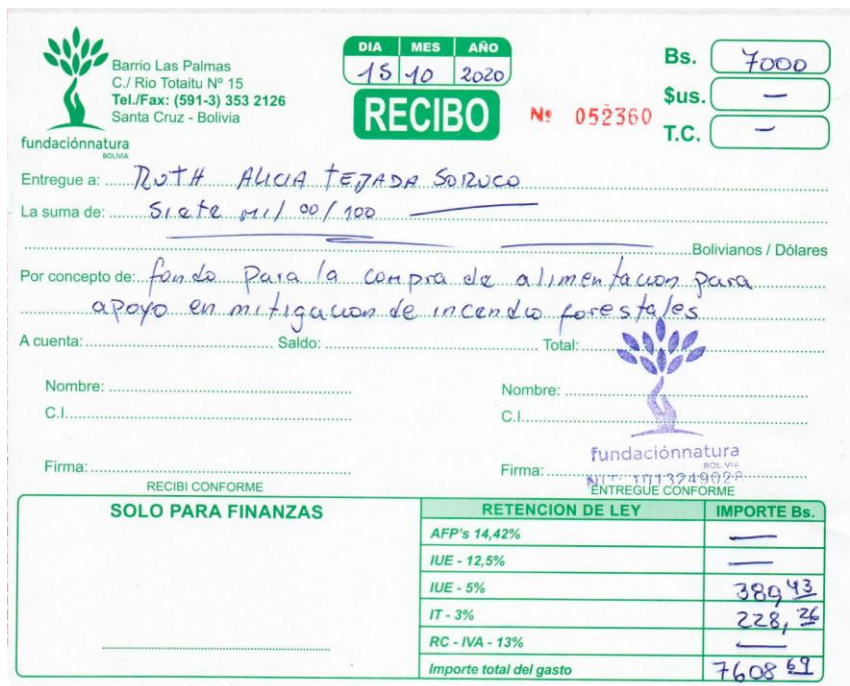 Barrio Las Palmas
C./ Rio Totaitu Nº 15
Tel./Fax: (591-3) 353 2126
Santa Cruz - Bolivia
fundaciónnatura
BOLIVIA
DIA MES AÑO
15 10 2020
RECIBO
Nº 052360
Bs. 7000
$us. —
T.C. —
Entregue a: RUTH ALICIA TEJADA SORUCO
La suma de: Siete mil 00/100
Bolivianos / Dólares
Por concepto de: fondo para la compra de alimentacion para
apoyo en mitigacion de incendio forestales
A cuenta: Saldo: Total:
Nombre: Nombre:
C.I. C.I.
fundaciónnatura
BOLIVIA
Firma: Firma:
NIT: 1013249028
RECIBI CONFORME ENTREGUE CONFORME
SOLO PARA FINANZAS
RETENCION DE LEY IMPORTE Bs.
AFP's 14,42% —
IUE - 12,5% —
IUE - 5% 380,43
IT - 3% 228,26
RC - IVA - 13% —
Importe total del gasto 7608 69